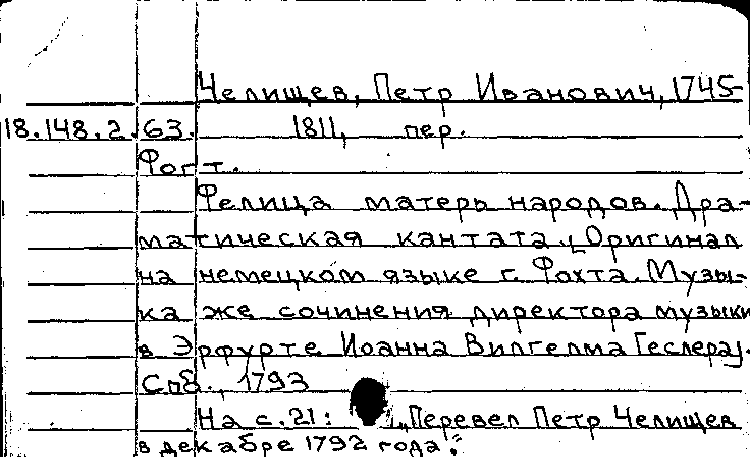 Челищев, Петр Иванович, 1745-
18.148.2.63. 1811, пер.
Фогт.
Фелица матерь народов. Дра-
матическая кантата. [Оригинал
на немецком языке г. Фохта. Музы-
ка же сочинения директора музыки
в Эрфурте Иоанна Вилгелма Геслера].
Спб., 1793
На с. 21: „Перевел Петр Челищев
в декабре 1792 года".